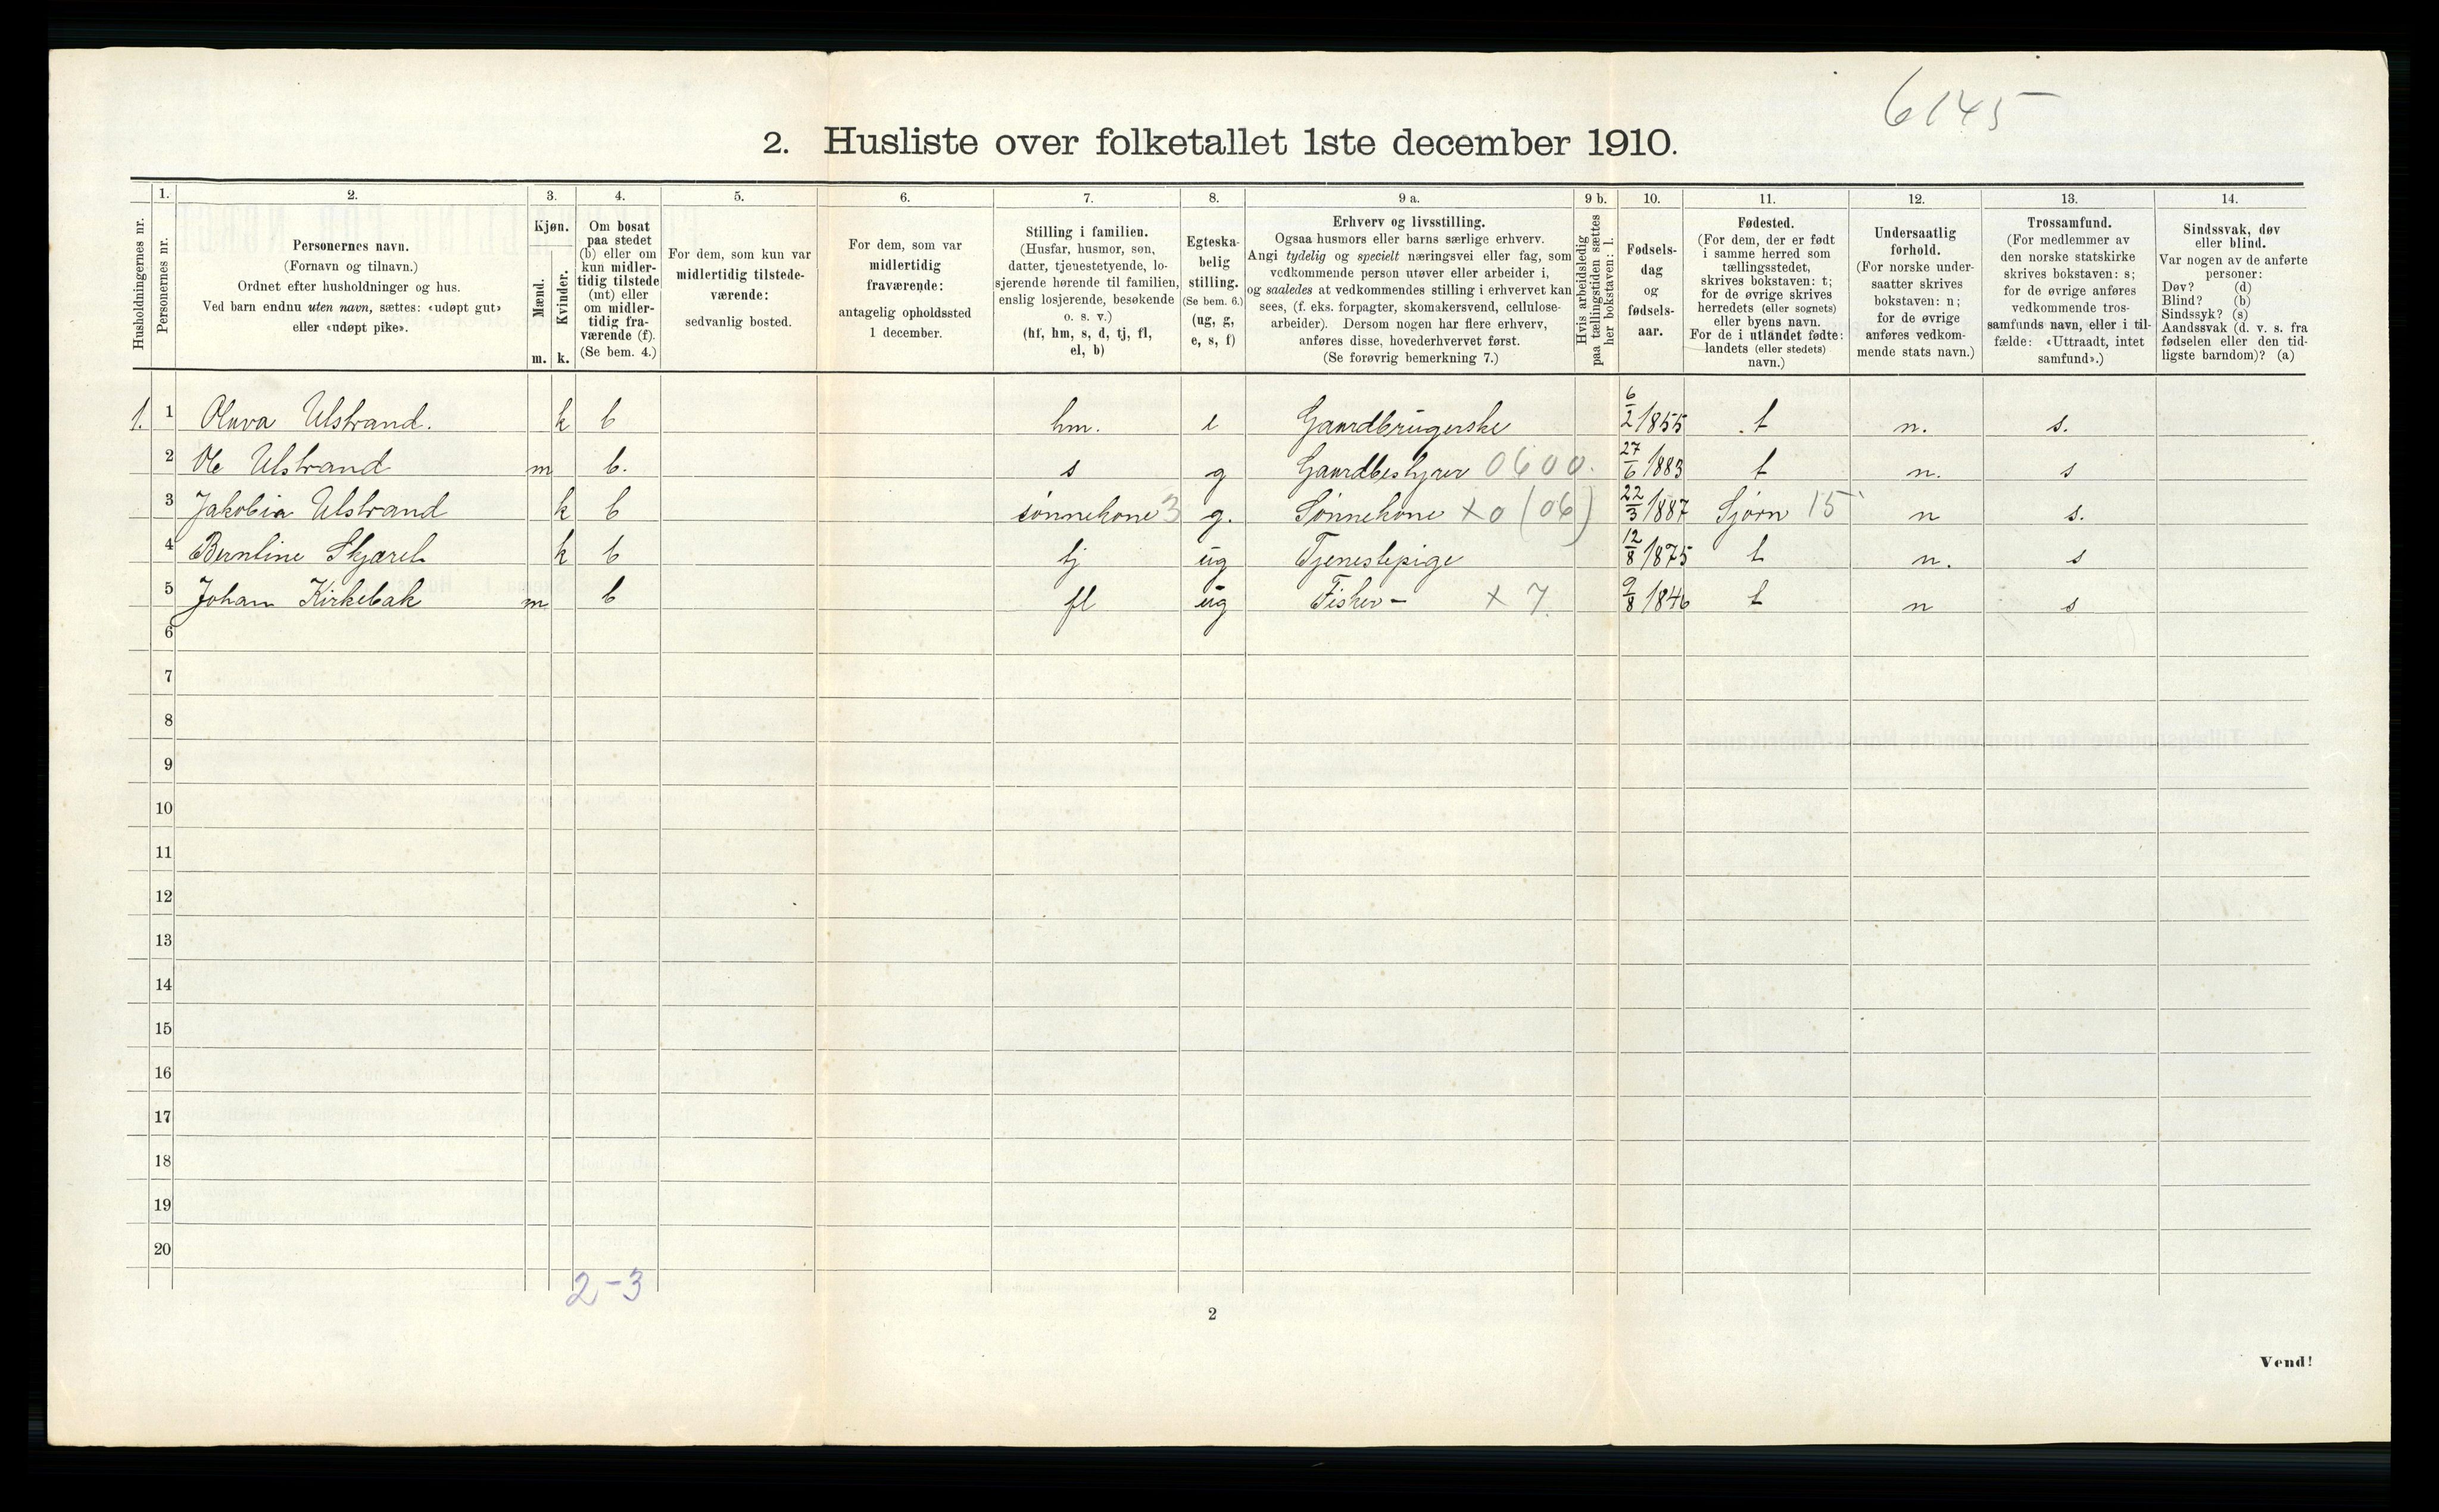 6145
2. Husliste over folketallet 1ste december 1910.
1. 2. 3. 4. 5. 6. 7. 8. 9 a. 9 b. 10. 11. 12. 13. 14.
Husholdningernes nr.
Personernes nr.
Personernes navn.
(Fornavn og tilnavn.)
Ordnet efter husholdninger og hus.
Ved barn endnu uten navn, sættes: «udøpt gut»
eller «udøpt pike».
Kjøn.
Mænd.
Kvinder.
m. k.
Om bosat
paa stedet
(b) eller om
kun midler-
tidig tilstede
(mt) eller
om midler-
tidig fra-
værende (f).
(Se bem. 4.)
For dem, som kun var
midlertidig tilstede-
værende:
sedvanlig bosted.
For dem, som var
midlertidig
fraværende:
antagelig opholdssted
1 december.
Stilling i familien.
(Husfar, husmor, søn,
datter, tjenestetyende, lo-
sjerende hørende til familien,
enslig losjerende, besøkende
o. s. v.)
(hf, hm, s, d, tj, fl,
el, b)
Egteska-
belig
stilling.
(Se bem. 6.)
(ug, g,
e, s, f)
Erhverv og livsstilling.
Ogsaa husmors eller barns særlige erhverv.
Angi tydelig og specielt næringsvei eller fag, som
vedkommende person utøver eller arbeider i,
og saaledes at vedkommendes stilling i erhvervet kan
sees, (f. eks. forpagter, skomakersvend, cellulose-
arbeider). Dersom nogen har flere erhverv,
anføres disse, hovederhvervet først.
(Se forøvrig bemerkning 7.)
Hvis arbeidsledig
paa tællingstiden sættes
her bokstaven: l.
Fødsels-
dag
og
fødsels-
aar.
Fødested.
(For dem, der er født
i samme herred som
tællingsstedet,
skrives bokstaven: t;
for de øvrige skrives
herredets (eller sognets)
eller byens navn.
For de i utlandet fødte:
landets (eller stedets)
navn.)
Undersaatlig
forhold.
(For norske under-
saatter skrives
bokstaven: n;
for de øvrige
anføres vedkom-
mende stats navn.)
Trossamfund.
(For medlemmer av
den norske statskirke
skrives bokstaven: s;
for de øvrige anføres
vedkommende tros-
samfunds navn, eller i til-
fælde: «Uttraadt, intet
samfund».)
Sindssvak, døv
eller blind.
Var nogen av de anførte
personer:
Døv? (d)
Blind? (b)
Sindssyk? (s)
Aandssvak (d. v. s. fra
fødselen eller den tid-
ligste barndom)? (a)
1. 1 Oluva Ulstrand. k b hm. e Gaardbrugerske 6/2 1855 t n. s.
2 Ole Ulstrand m b. s g Gaardbestyrer 0600. 27/6 1883 t n. s
3 Jakobia Ulstrand k b sønnekone 3 g. Sønnekone x0 (06) 22/3 1887 Sjørn 15 n s.
4 Berntine Skjæret k b tj ug Tjenestepige 12/8 1875 t n. s
5 Johan Kirkebak m b fl ug Fisker - x 7. 9/8 1846 t n s
6
7
8
9
10
11
12
13
14
15
16
17
18
19
20
2-3
2
Vend!